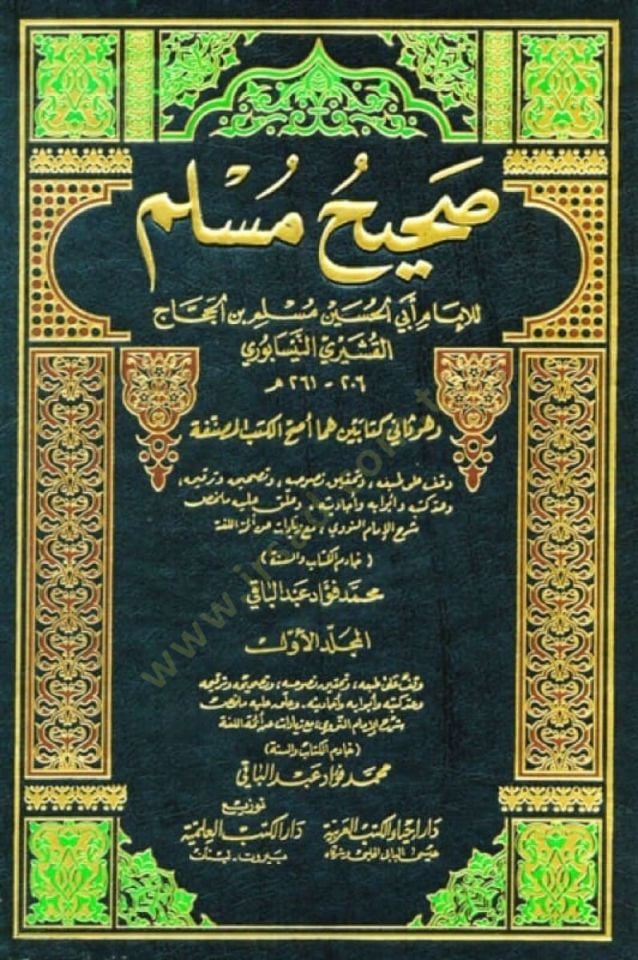 صَحِيحُ مُسْلِم
للإمام أبي الحسين مسلم بن الحجاج
القشيري النيسابوري
٢٠٦ - ٢٦١ هـ
وهو ثاني كتابين هما أصح الكتب المصنفة
وقف على طبعه، وتحقيق نصوصه، وتصحيحه وترقيمه،
وعدّ كتبه وأبوابه وأحاديثه. وعلّق عليه ملخص
شرح الإمام النووي، مع زيادات عن أئمة اللغة
(خادم الكتاب والسنة)
محمد فؤاد عبد الباقي
المجلد الأول
وقف على طبعه، وتحقيق نصوصه، وتصحيحه وترقيمه
وعدّ كتبه وأبوابه وأحاديثه. وعلّق عليه ملخص
شرح الإمام النووي، مع زيادات عن أئمة اللغة
(خادم الكتاب والسنة)
محمد فؤاد عبد الباقي
توزيع
دار إحياء الكتب العربية
عيسى البابي الحلبي وشركاه
دار الكتب العلمية
بيروت - لبنان